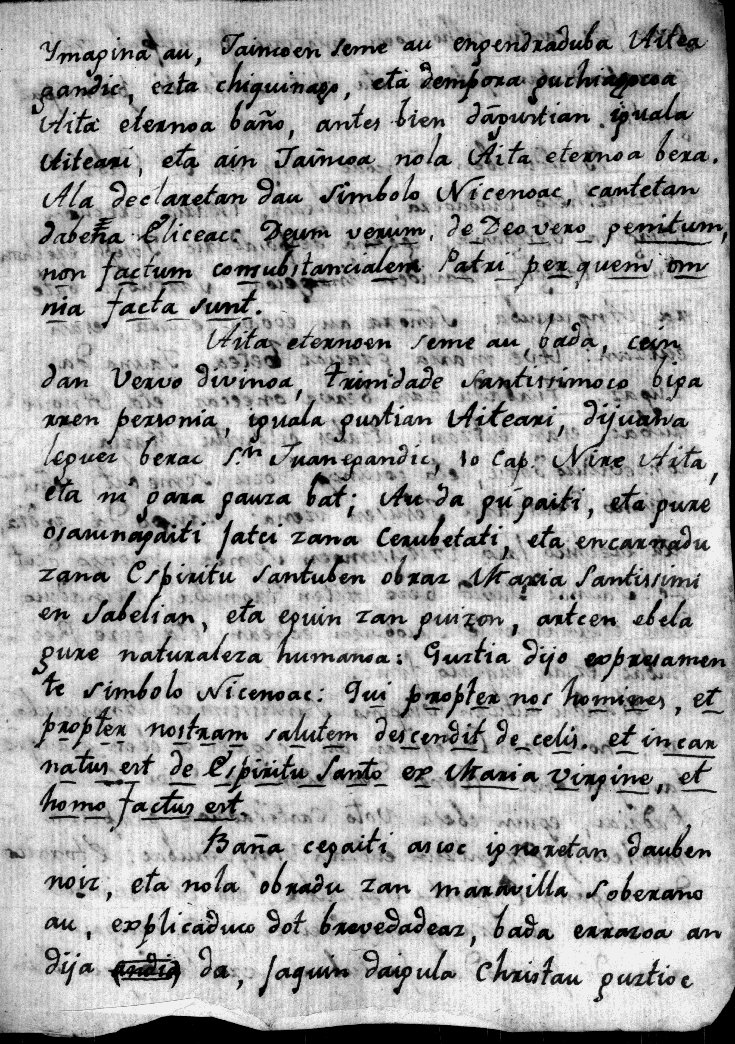 Ymagina au, Jaincoen seme au engendraduba Aitea
gandic, ezta chiquinago, eta dempora guchiagocoa
Aita eternoa baño, antes bien dā gustian iguala
Aiteari, eta ain Jaincoa nola Aita eternoa bera.
Ala declaretan dau Simbolo Nicenoac, cantetan
dabeña Eliceac: Deum verum, de Deo vero genitum,
non factum consubstancialem Patri per quem om
nia facta sunt.
Aita eternoen seme au bada, cein
dan Vervo divinoa, trinidade santissimoco biga
rren personia, iguala gustian Aiteari, dijuana
leguez berac S.n Juanegandic, 10 Cap. Nire Aita,
eta ni gara gauza bat; Au da gu gaiti, eta gure
osasunagaiti jatci zana Cerubetati, eta encarnadu
zana Espiritu santuben obraz Maria Santissimi
en sabelian, eta eguin zan guizon, artcen ebela
gure naturaleza humanoa: Guztia dijo expresamen
te simbolo Nicenoac: Qui propter nos homines, et
propter nostram salutem descendit de celis. et incar
natus est de Espiritu Santo ex Maria virgine, et
homo factus est
Baña cegaiti asco ignoretan dauben
noiz, eta nola obradu zan maravilla soberano
au, explicaduco dot brevedadeaz, bada errazoa an
dija da, jaquin daigula Christau guztioc